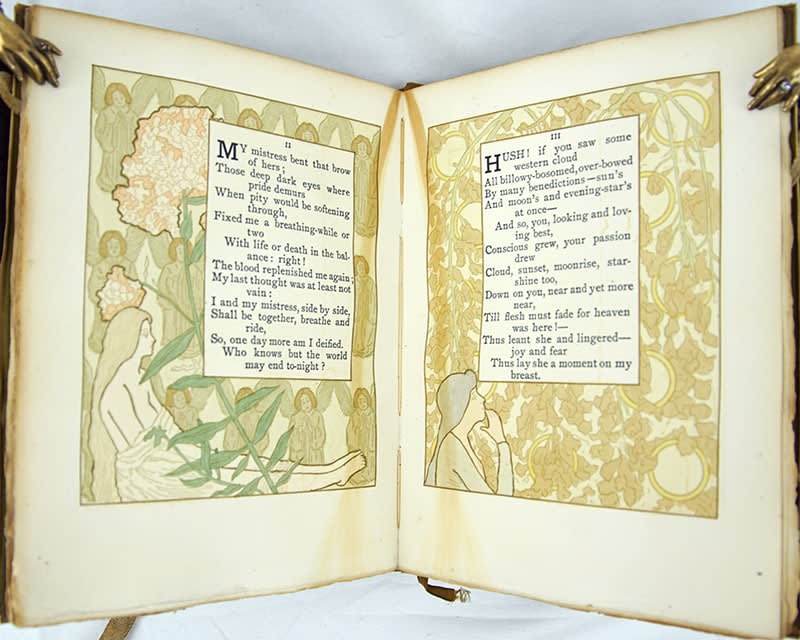 II
MY mistress bent that brow
of hers;
Those deep dark eyes where
pride demurs
When pity would be softening
through,
Fixed me a breathing-while or
two
With life or death in the bal-
ance: right!
The blood replenished me again;
My last thought was at least not
vain:
I and my mistress, side by side,
Shall be together, breathe and
ride,
So, one day more am I deified.
Who knows but the world
may end to-night?
III
HUSH! if you saw some
western cloud
All billowy-bosomed, over-bowed
By many benedictions—sun's
And moon's and evening-star's
at once—
And so, you, looking and lov-
ing best,
Conscious grew, your passion
drew
Cloud, sunset, moonrise, star-
shine too,
Down on you, near and yet more
near,
Till flesh must fade for heaven
was here!—
Thus leant she and lingered—
joy and fear
Thus lay she a moment on my
breast.